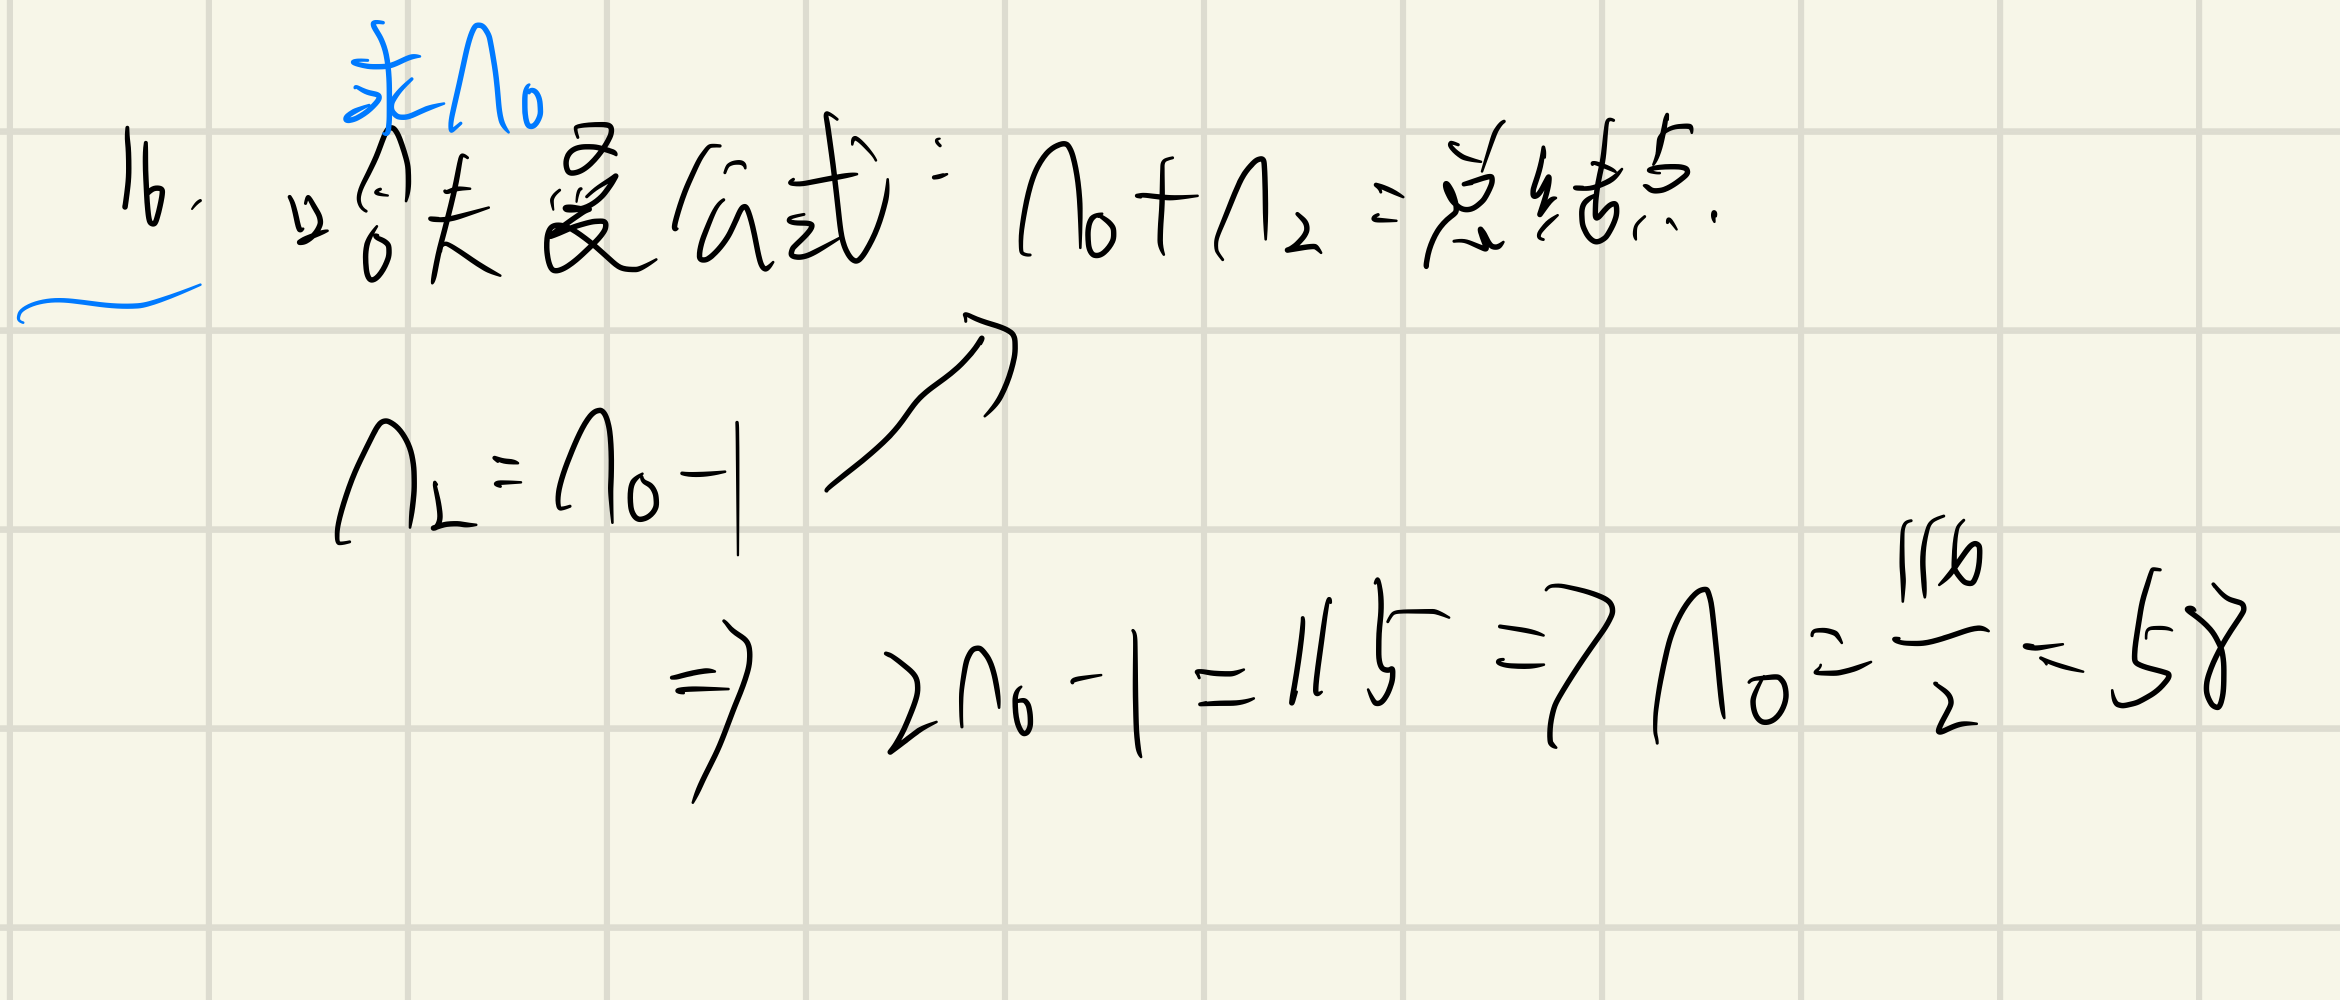 求n₀
16. 哈夫曼(公式): n₀+n₂=总结点.
n₂=n₀-1
=> 2n₀-1=115 => n₀=116/2=58